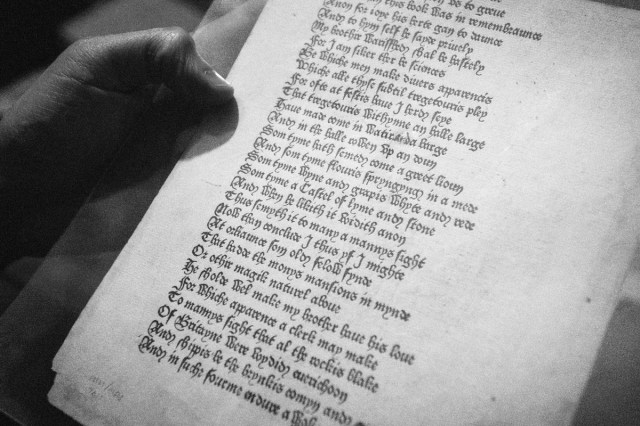 is to greue
an this book was in remembraunce
Anon for ioye his herte gan to daunce
And to hym self he sayde priuely
My brother warisshed shal be hastely
For I am siker ther be sciences
Be whiche men make diuers apparencis
Whiche alle thyse subtil tregetouris pley
For ofte at festis haue I herd seye
That tregetouris withynne an halle large
Haue made come in watir barge
And in the halle rowen vp an doun
Som tyme hath semed come a greet lioun
And som tyme flouris spryngyng in a mede
Som tyme vyne and grapis whyte and rede
Som tyme a Castel of lyme and stone
And when he liketh it voideth anon
Thus semyth it to many a mannys sight
Now than conclude I thus yf I mighte
At orliaunce som oldy felow fynde
That hadde the monys mansions in mynde
Or othir magik naturel aboue
He sholde wel make my brother haue his loue
For whiche apparence a clerk may make
To mannys sight that al the rockis blake
Of Britayne were voydid euerichoon
And shippis be the brynkis comyn and
And in suche fourme endure a